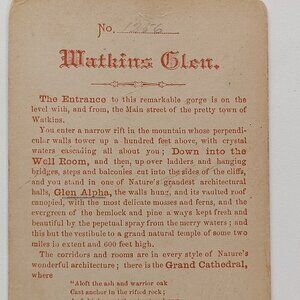 No. 1256
Watkins Glen.
The Entrance to this remarkable gorge is on the
level with, and from, the Main street of the pretty town of
Watkins.
You enter a narrow rift in the mountain whose perpendi-
cular walls tower up a hundred feet above, with crystal
waters cascading all about you; Down into the
Well Room, and then, up over ladders and hanging
bridges, steps and balconies cut into the sides of the cliffs,
and you stand in one of Nature's grandest architectural
halls, Glen Alpha, the walls hung, and its vaulted roof
canopied, with the most delicate mosses and ferns, and the
evergreen of the hemlock and pine a ways kept fresh and
beautiful by the perpetual spray from the merry waters; and
this but the vestibule to a grand natural temple of some two
miles in extent and 600 feet high.
The corridors and rooms are in every style of Nature's
wonderful architecture; there is the Grand Cathedral,
where
"Aloft the ash and warrior oak
Cast anchor in the rifted rock;